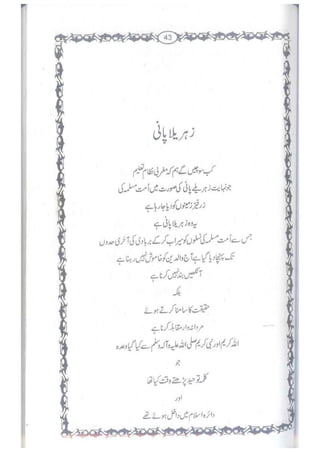 43
زہریلا پانی
کب سوچیں گے ہم کہ مغربی نظام تعلیم
جو نہایت زہریلے پانی کی صورت میں اُمت مسلمہ کی
زرخیز زمینوں کو دیا جا رہا ہے
یہ وہ زہریلا پانی ہے
جس سے اُمت مسلمہ کی نسلوں کو سیراب کر کے بربادی کی آخری حدوں
تک پہنچا دیا گیا ہے آج والدین کو خاموش نہیں رہنا ہے
آنکھیں بند نہیں کرنا ہے
بلکہ
حقیقت کا سامنا کرتے ہوئے
مردانہ وار مقابلہ کرنا ہے
اللہ کریم اور نبی کریم صلی اللہ علیہ وآلہ وسلم سے کیا گیا وعدہ
جو
کلمہ توحید پڑھتے وقت کیا تھا
اور
دائرہ اسلام میں داخل ہوئے تھے